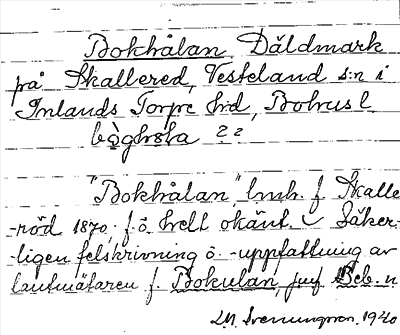 Bokhålan Däldmark
på Skallered, Vesteland s:n i
Inlands Torpe hd, Bohusl.
"Bokhålan" lmh. f. Skalle
-röd 1870. f. ö. helt okänt. Säker-
-ligen felskrivning o. -uppfattning av
lantmätaren f. Bokulan, jmf Beb. n
LM. Svenungson. 1920